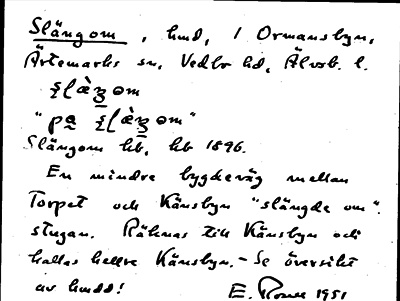 Slängom, hmd, i Ormansbyn,
Ärtemarks sn, Vedbo hd, Älvsb. l.
Slängom hb, hb 1896.
En mindre bygdeväg mellan
Torpet och Känsbyn "slängde om"
stugan. Räknas till Känsbyn och
kallas hellre Känsbyn. - Se översikt
av hmdd! E. 1951